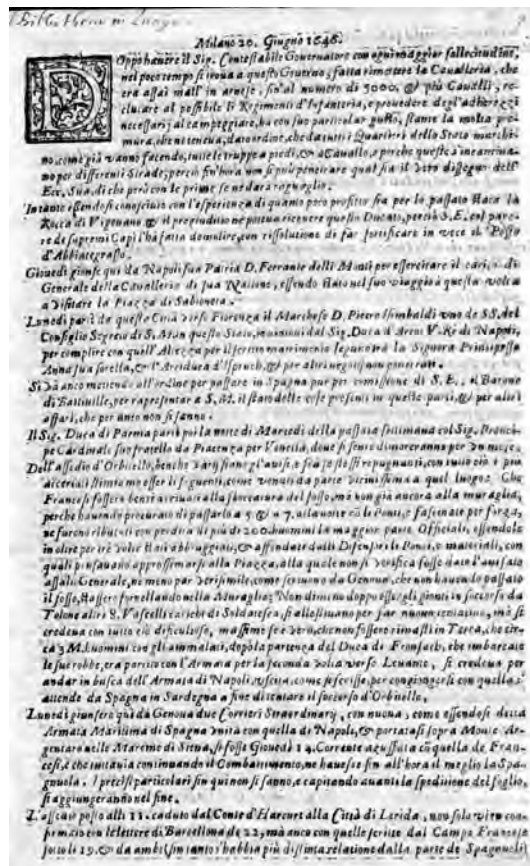 Milano 20. Giugno 1646.
DOppo havere il Sig. Contestabile Governatore con ogni maggior sollecitudine,
nel poco tempo si trova a questo Governo, fatta rimettere la Cavalleria, che
era assai mall' in arnese, sin'al numero di 5000. & più Cavalli, re-
clutare al possibile li Regimenti d'Infanteria, e provedere degl'adherezzi
necessarij al campeggiare, ha con suo particolar gusto, stante la molta pre-
mura, che ne teneva, dato ordine, che da tutti i Quartieri dello Stato marchi-
no, come già vanno facendo, tutte le truppe a piedi, & a Cavallo, e perche queste s'incamina-
no per differenti Strade, perciò fin'hora non si può penetrare qual sia il vero dissegno dell'
Ecc. Sua, di che però con le prime se ne darà raguaglio.
Intanto essendosi conosciuto con l'esperienza di quanto poco profitto sia per lo passato stata la
Rocca di Vigevano & il pregiuditio ne poteva ricevere questo Ducato, perciò S. E. col pare-
re de supremi Capi l'hà fatta demolire, con rissolutione di far fortificare in vece il Posso
d'Abbiategrasso.
Giovedi gionse qui da Napoli sua Patria D. Ferrante delli Monti per essercitare il carico di
Generale della Cavalleria di sua Natione, essendo stato nel suo viaggio a questa volta
a visitare la Piazza di Sabioneta.
Lunedi partì da questa Città verso Fiorenza il Marchese D. Pietro Isimbaldi uno de SS. del
Consiglio Segreto di S. M. in questo Stato, ... dal Sig. Duca d'Arcos V. Rè di Napoli,
per complire con quell'Altezza per il ... matrimonio seguirà tra la Signora Principessa
Anna sua sorella, & l'Arciduca d'Ispruch, & per altri urgenti ...
Si và anco mettendo all'ordine per passare in Spagna pur per comissione di S. E., il Barone
di Battiville, per rapresentar a S. M. il stato delle cose presenti in queste parti, & per altri
affari, che per anco non si sanno.
Il Sig. Duca di Parma partì poi la notte di Martedi della passata settimana col Sig. Princi-
pe Cardinale suo fratello da Piacenza per Venetia, dove si sente dimoreranno per un mese.
Dell'assedio d'Orbitello, benche varij siano gl'avisi, e fra se stessi repugnanti, con tutto ciò i più
accertati stimano esser li seguenti, come venuti da parte vicinissima a quel luogo: Che
Francesi fossero bensì arrivati alla sboccatura del fosso, mà non già ancora alla muraglia,
perche havendo procurato di passarlo a 5. & a 7. alla notte cō le Ponti, e fascinate per forza,
ne furono ributtati con perdita di più di 200. huomini la maggior parte Officiali, essendole
in oltre per trè volte stati abbruggiati, & affondate dalli Difensori le Ponti, e materiali, con
quali pensavano approssimarsi alla Piazza, alla quale non si verifica fosse dato l'avisato
assalto Generale, ne meno par verisimile, come scrivono da Genova, che non havendo passato
il fosso, stassero fornellando nella Muraglia; Non di meno doppo essergli gionti in soccorso da
Tolone altri 8. Vascelli carichi di Soldatesca, si allestivano per far nuovo tentativo, mà si
credeva con tutto ciò dificultoso, massime se è vero, che non fossero rimasti in Terra, che cir-
ca 3 M. huomini con gli ammalati, dopò la partenza del Duca di Fronsach, che imbarcate
le sue robbe, era partito con l'Armata per la seconda volta verso Levante, si credeva per
andar in busca dell'Armata di Napoli uscita, come si scrisse, per congiongersi con quella s'
attende da Spagna in Sardegna a fine di tentare il soccorso d'Orbitello.
Lunedi giunsero quì da Genova due Corrieri Straordinarij, con nuova, come essendosi detta
Armata Maritima di Spagna unita con quella di Napoli, & portatasi sopra Monte Ar-
gentaro nelle Maremme di Siena, si fosse Giovedi 14. Corrente azuffata cō quella de Fran-
cesi, e che tuttavia continuando il Combattimento, ne havesse fin all'hora il meglio la Spa-
gnuola. I precisi particolari fin qui non si sanno, e capitando avanti la speditione del foglio,
si aggiungeranno nel fine.
L'assedio posto alli 11. caduto dal Conte d'Harcurt alla Città di Lerida, non solo viene con-
firmato con le lettere di Barcellona de 22, mà anco con quelle scritte dal Campo Francese
sotto li 19. & da ambi s'intanto s'habbia più distinta relatione dalla parte de Spagnuoli